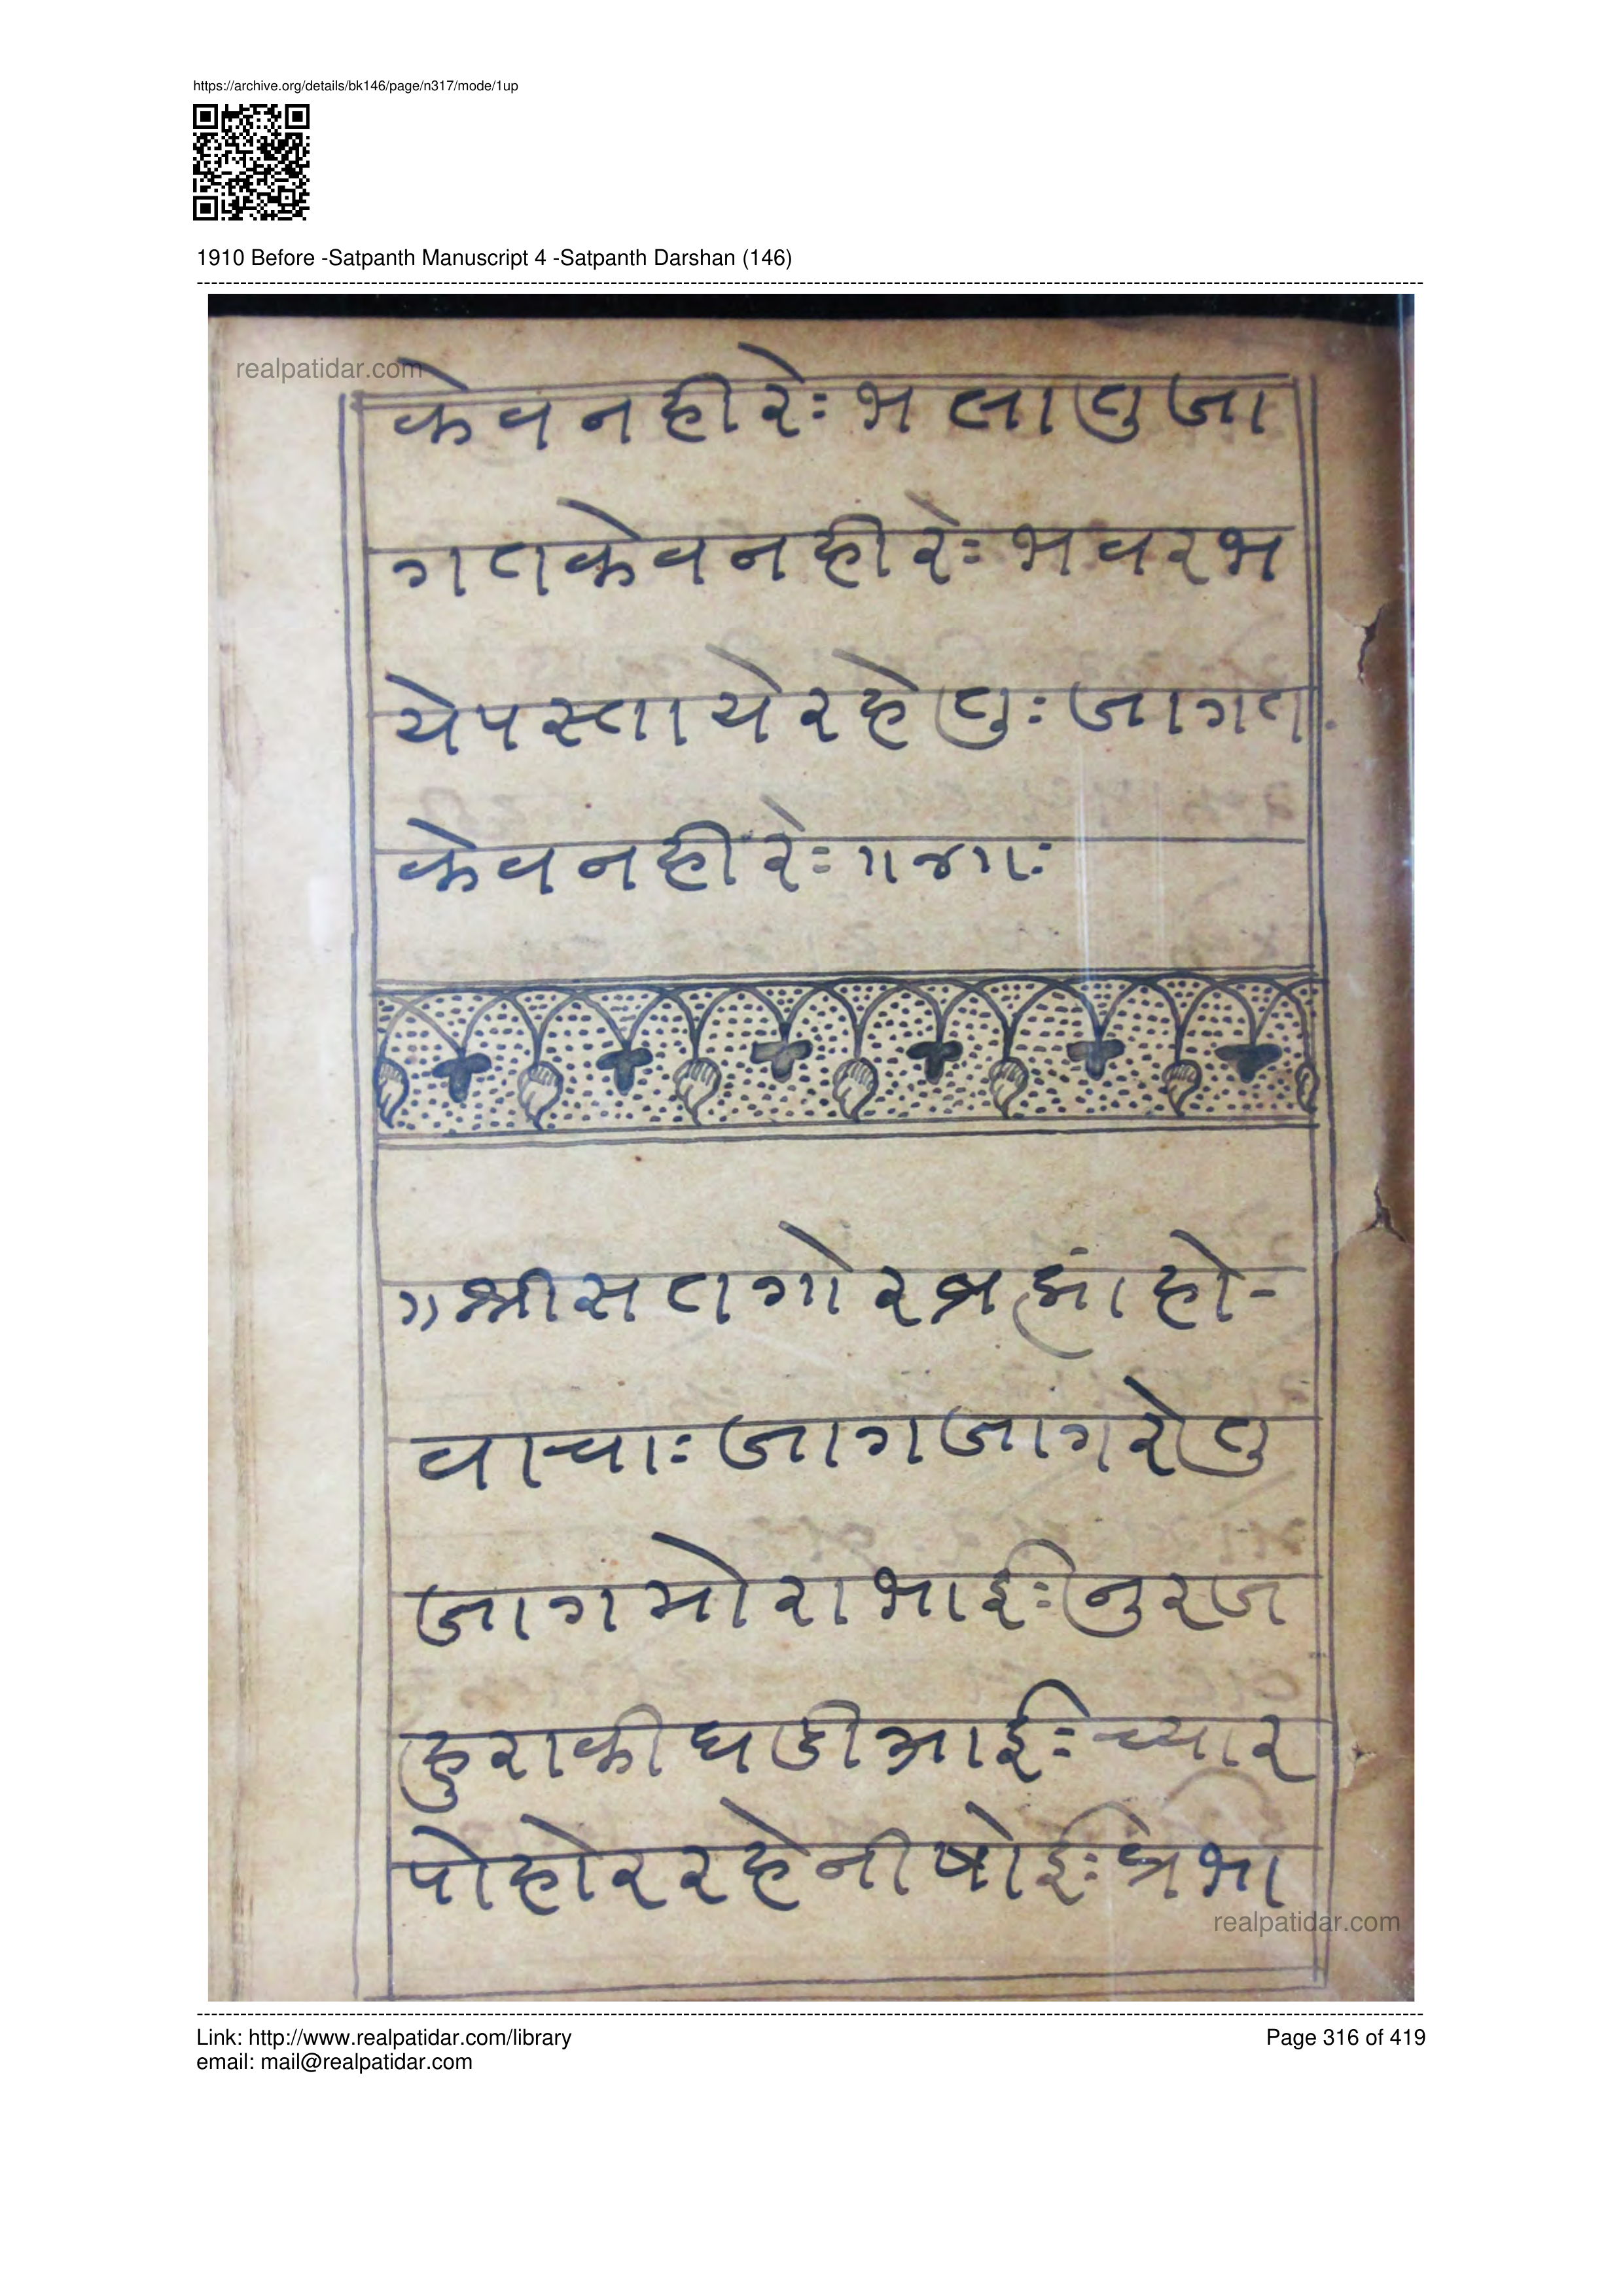 https://archive.org/details/bk146/page/n317/mode/1up
1910 Before -Satpanth Manuscript 4 -Satpanth Darshan (146)
realpatidar.com
केवनहीरेः भलातुजा
गतकेवनहीरेः भवरभ
येपस्तायेरहेतुः जागत
केवनहीरेः ॥४॥ः
॥श्रीसतगोरब्रह्मांहो-
वाचाः जागजागरेतु
जागमोराभाईः नुरज
हुराकीघडीआईः च्यार
पोहोररहेनीषोईः प्रभा
realpatidar.com
Link: http://www.realpatidar.com/library
Page 316 of 419
email: mail@realpatidar.com